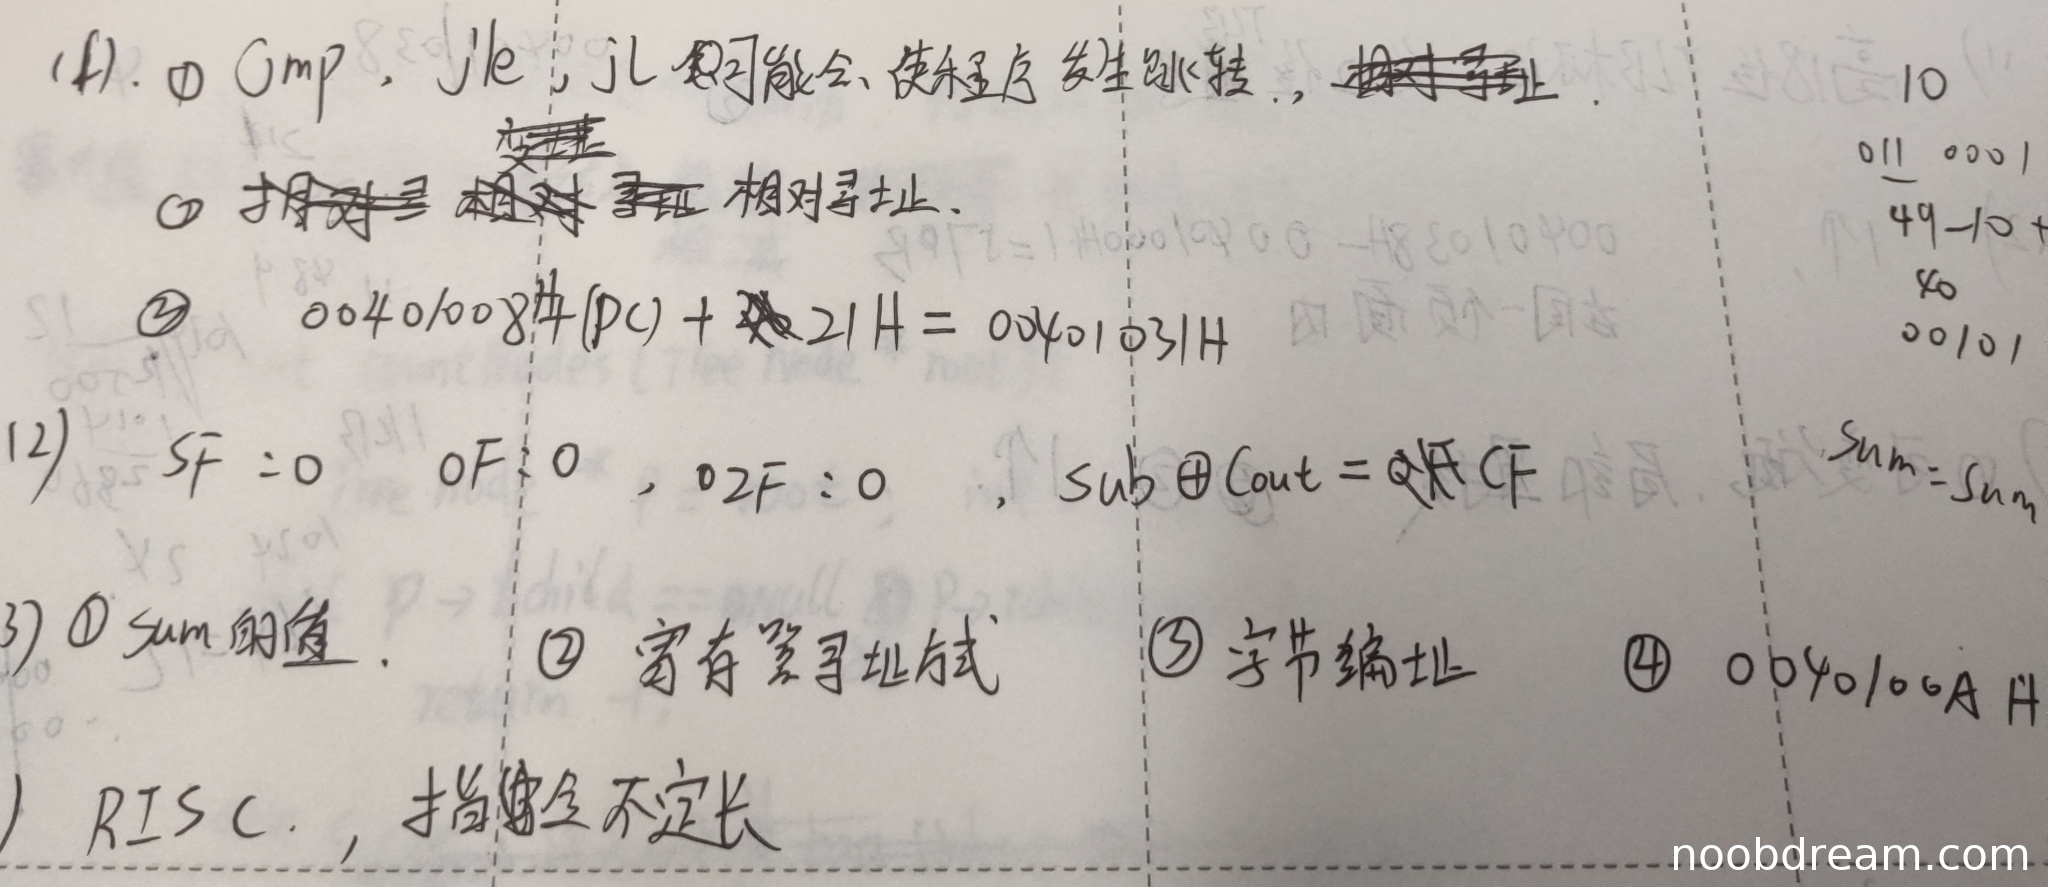 (1). ① Cmp, jle, jL 可能会使程序发生跳转.,
10
011 0001
② 相对寻址.
49-10+
40
③ 00401008H(PC) + 21H = 00401031H
00101
(2) SF:0 OF:0, ZF:0, sub⊕Cout = CF
Sum=Sum
3) ① sum的值. ② 寄存器寻址方式 ③ 字节编址 ④ 0040100A H
) RISC., 指令不定长
noobdream.com